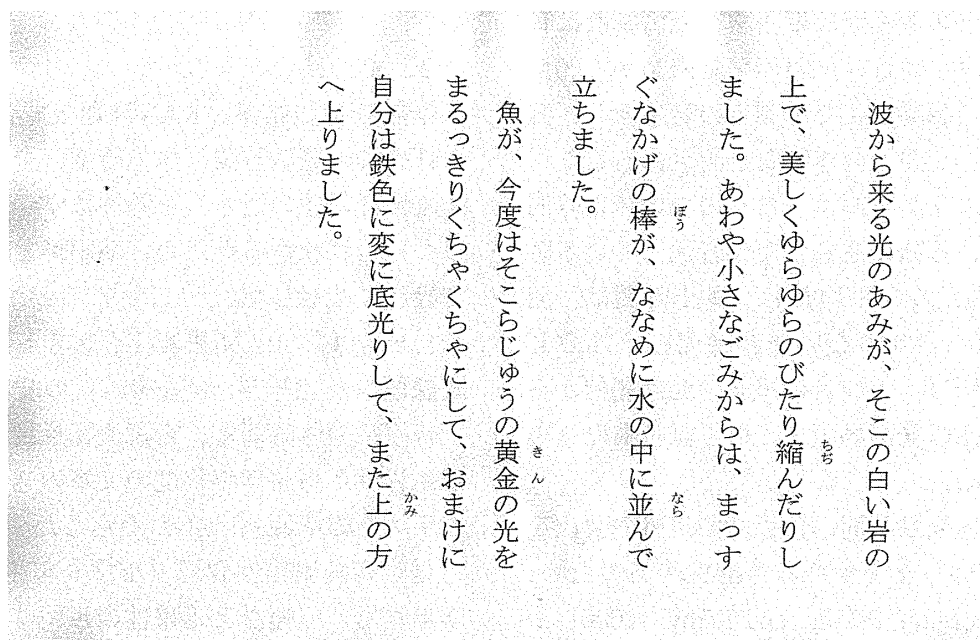 波から来る光のあみが、そこの白い岩の
上で、美しくゆらゆらのびたり縮んだりし
ました。あわや小さなごみからは、まっす
ぐなかげの棒が、ななめに水の中に並んで
立ちました。
　魚が、今度はそこらじゅうの黄金の光を
まるっきりくちゃくちゃにして、おまけに
自分は鉄色に変に底光りして、また上の方
へ上りました。
ちぢ
ぼう
なら
きん
かみ